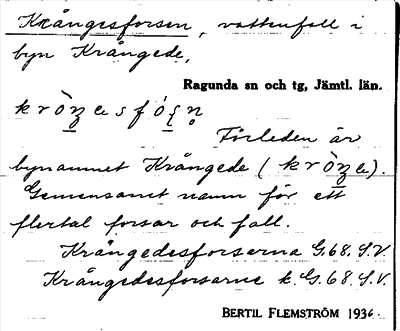 Krångesforsen, vattenfall i
byn Krångede,
Ragunda sn och tg, Jämtl. län.
Förleden är
bynamnet Krångede
Gemensamt namn för ett
flertal forsar och fall.
Krångedesforsarna G.68. S.V.
Krångedesforsarne k. G. 68 S.V.
BERTIL FLEMSTRÖM 1936.